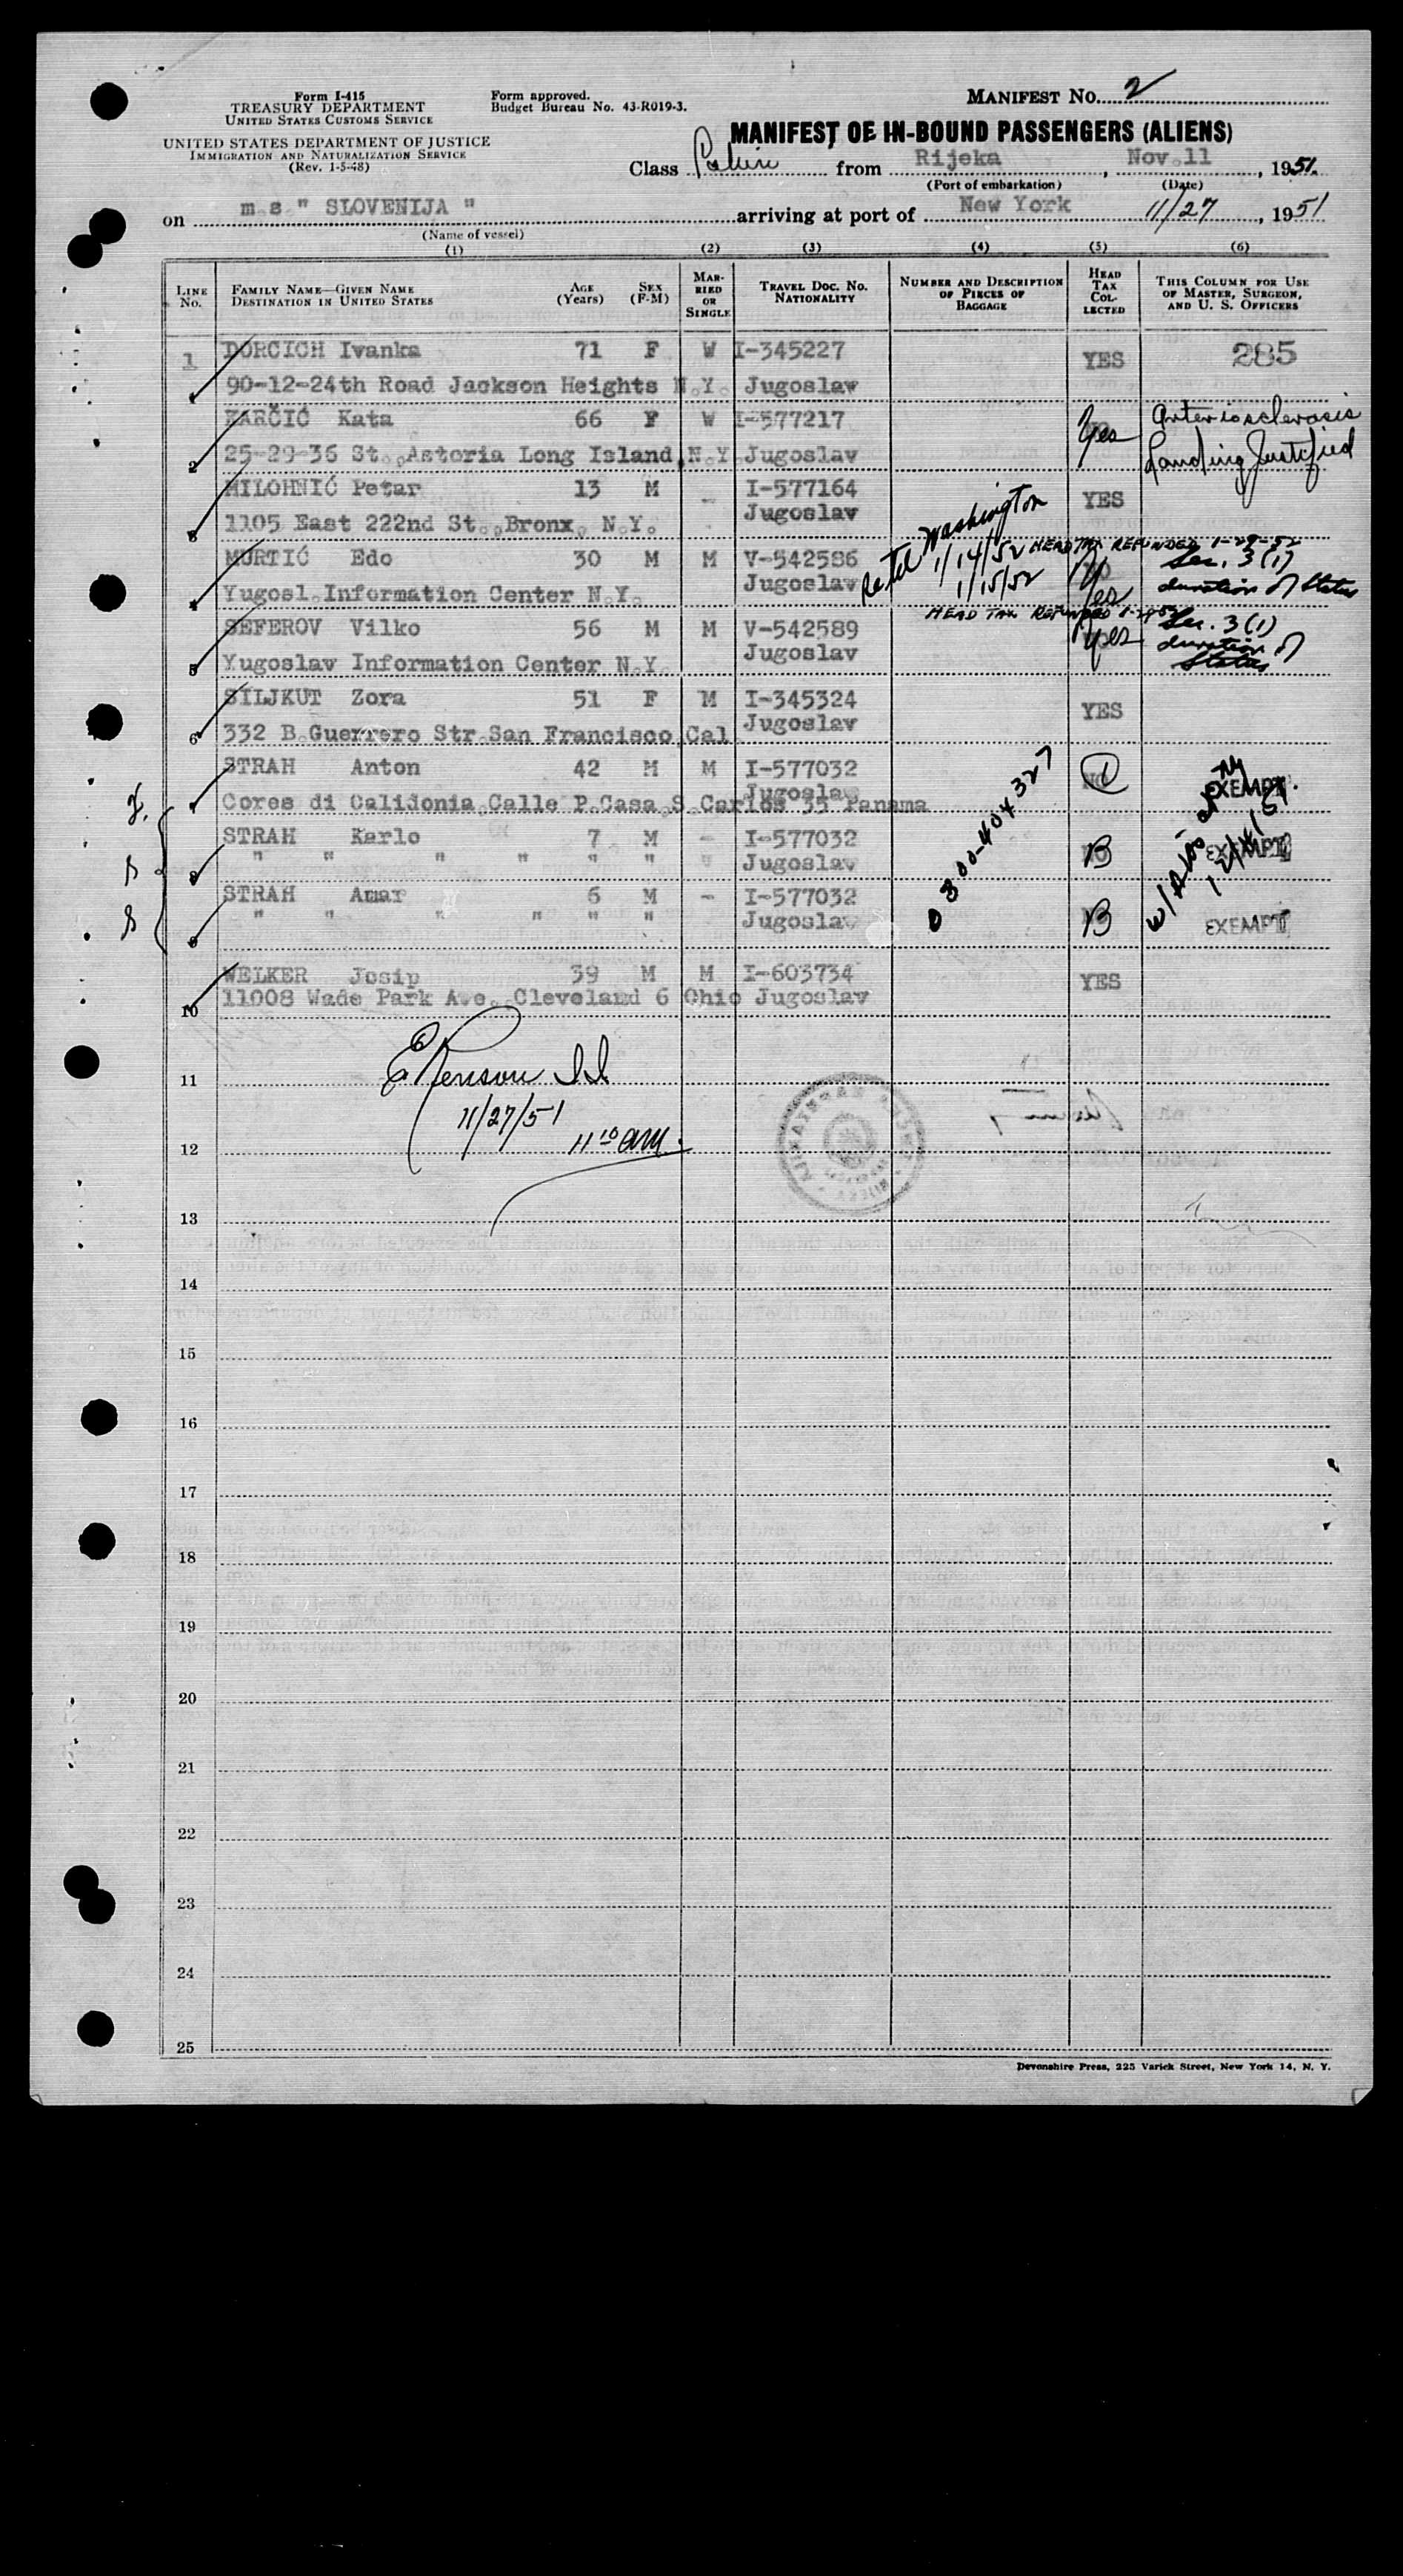 Form I-415
TREASURY DEPARTMENT
UNITED STATES CUSTOMS SERVICE
UNITED STATES DEPARTMENT OF JUSTICE
IMMIGRATION AND NATURALIZATION SERVICE
(Rev. 1-5-48)
Form approved.
Budget Bureau No. 43-R019-3.
MANIFEST NO. 2
MANIFEST OF IN-BOUND PASSENGERS (ALIENS)
Class from Rijeka, Nov.11, 1951.
(Port of embarkation) (Date)
on m.s." SLOVENIJA " arriving at port of New York 11/27, 1951
(Name of vessel)
(1) (2) (3) (4) (5) (6)
LINE NO. FAMILY NAME—GIVEN NAME DESTINATION IN UNITED STATES AGE (Years) SEX (F-M) MARRIED OR SINGLE TRAVEL DOC. NO. NATIONALITY NUMBER AND DESCRIPTION OF PIECES OF BAGGAGE HEAD TAX COLLECTED THIS COLUMN FOR USE OF MASTER, SURGEON, AND U. S. OFFICERS
1 DORCICH Ivanka 71 F W I-345227 YES 285
90-12-24th Road Jackson Heights N.Y. Jugoslav
KARČIĆ Kata 66 F W I-577217 Yes Arteriosclerosis
2 25-29-36 St.,Astoria Long Island,N.Y Jugoslav Landing Justified
MILOHNIĆ Petar 13 M - I-577164 YES
3 1105 East 222nd St.,Bronx, N.Y. Jugoslav
Re tel Washington 1/14/52 1/15/52
HEAD TAX REFUNDED 1-29-52
MURTIĆ Edo 30 M M V-542586 Yes Sec. 3(1)
4 Yugosl.Information Center N.Y. Jugoslav duration of Status
HEAD TAX REFUNDED
SEFEROV Vilko 56 M M V-542589 Yes Sec. 3(1)
5 Yugoslav Information Center N.Y. Jugoslav duration of Status
SILJKUT Zora 51 F M I-345324 YES
6 332 B.Guerrero Str.San Francisco,Cal. Jugoslav
STRAH Anton 42 M M I-577032 NO 1 EXEMPT
7 Cores di Calidonia,Calle P.Casa,S.Carlos 35 Panama Jugoslav
0300-404327
STRAH Karlo 7 M - I-577032 NO B EXEMPT
8 " " " " " " " Jugoslav
STRAH Amar 6 M - I-577032 NO B EXEMPT
9 " " " " " " Jugoslav
WELKER Josip 39 M M I-603734 YES
10 11008 Wade Park Ave.,Cleveland 6 Ohio Jugoslav
11
11/27/51
12 11 10 AM.
13
14
15
16
17
18
19
20
21
22
23
24
25
Devonshire Press, 225 Varick Street, New York 14, N. Y.